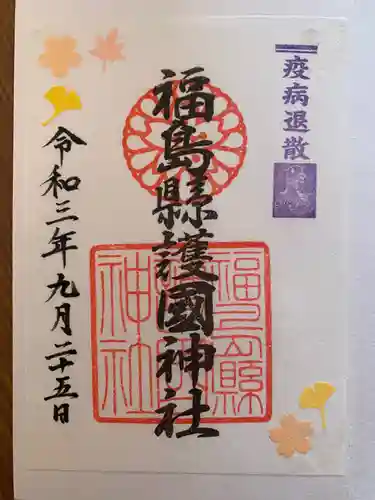 疫病退散
福島縣護國神社
福島縣
神社
令和三年九月二十五日